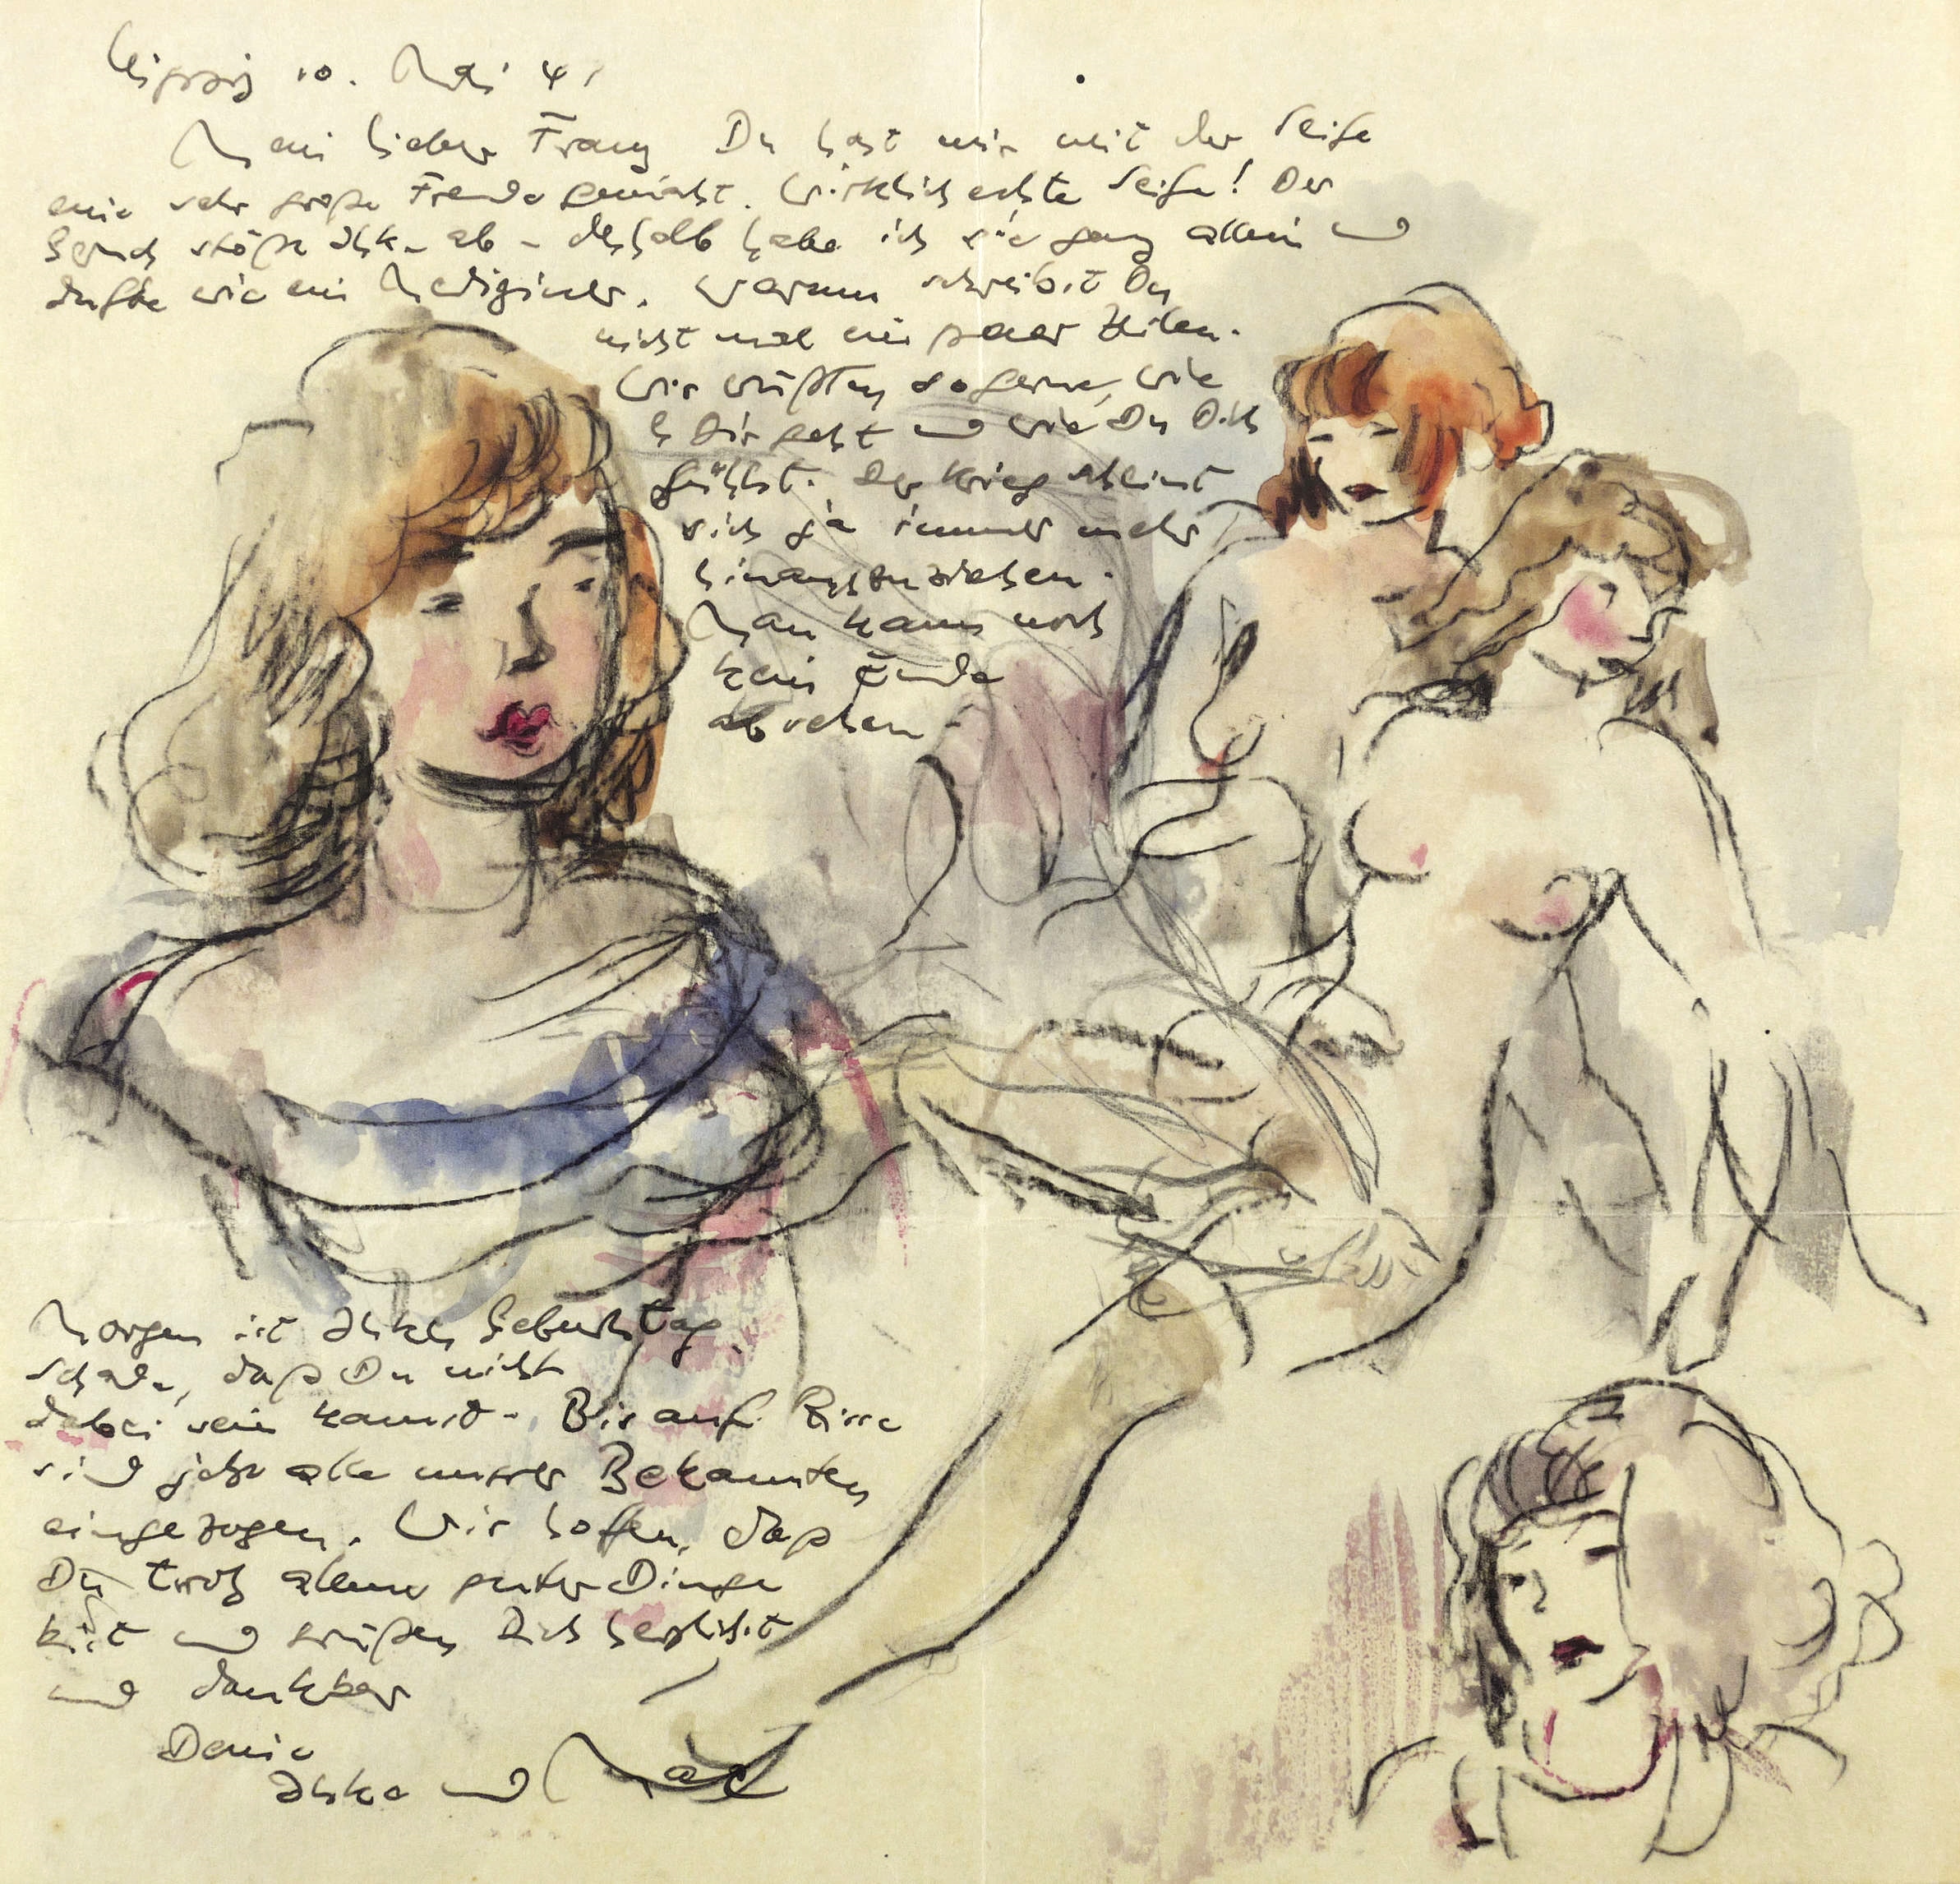 Leipzig 10. Mai 41
Mein lieber Franz Du hast mir mit der Seife
eine sehr große Freude gemacht. Wirklich echte Seife! Der
Geruch stößt Ilske ab – deshalb habe ich sie ganz allein und
dufte wie ein Mediziner. Warum schreibst Du
nicht mal ein paar Zeilen.
Wir wüßten so gerne, wie
es Dir geht und wie Du Dich
fühlst. Der Krieg scheint
sich ja immer mehr
hinauszuziehen.
Man kann noch
kein Ende
absehen –
Morgen ist Ilskes Geburtstag.
Schade, daß Du nicht
dabei sein kannst – Bis auf
sind jetzt alle unsrer Bekannten
eingezogen. Wir hoffen, daß
Du trotz allem guter Dinge
bist und grüßen Dich herzlichst
und dankbar
Deine
Ilske und Max